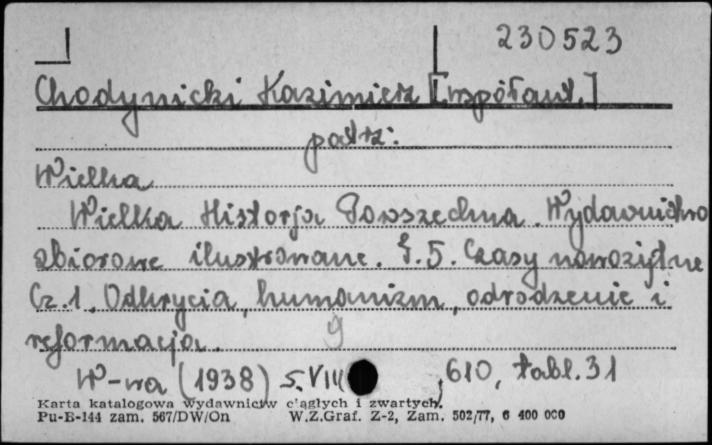 230523
Chodynicki Kazimierz [współaut.]
patrz:
Wielka
Wielka Historja Powszechna. Wydawnictwo
zbiorowe ilustrowane. T.5. Czasy nowożytne
Cz.1. Odkrycia, humanizm, odrodzenie i
reformacja. 9
W-wa (1938) s. VIII, 610, tabl. 31
Karta katalogowa wydawnictw ciągłych i zwartych.
Pu-B-144 zam. 567/DW/On W.Z.Graf. Z-2, Zam. 502/77, 6 400 000